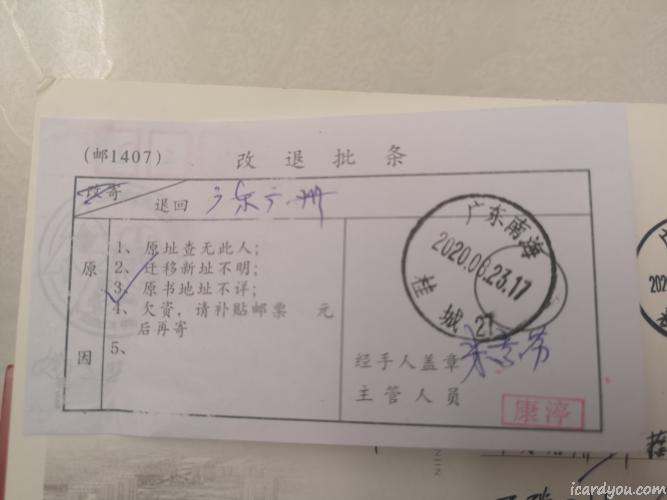 (邮1407) 改退批条
改寄
退回 广东广州
原因
1、原址查无此人;
2、迁移新址不明;
3、原书地址不详;
4、欠资,请补贴邮票 元
后再寄
5、
广东南海
2020.06.23.17
桂城 27
经手人盖章
主管人员
康渟
icardyou.com